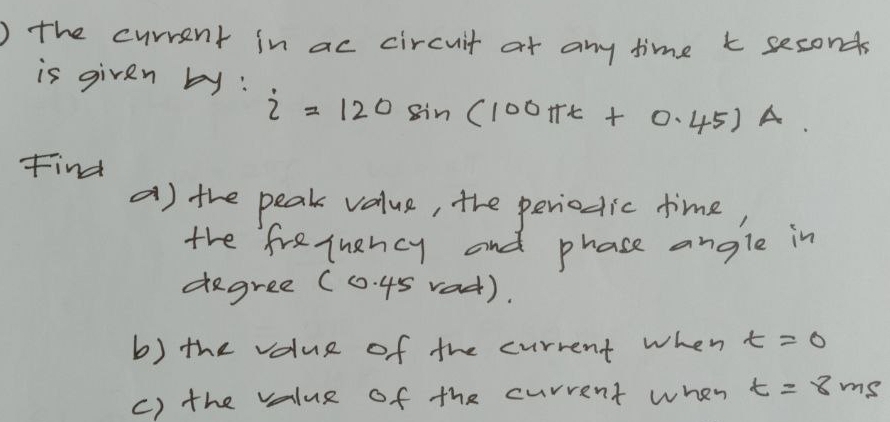 ) The current in ac circuit at any time t seconds
is given by :
i = 120 sin (100πt + 0.45) A .
Find
a) the peak value , the periodic time ,
the frequency and phase angle in
degree (0.45 rad).
b) the value of the current when t = 0
c) the value of the current when t = 8 ms